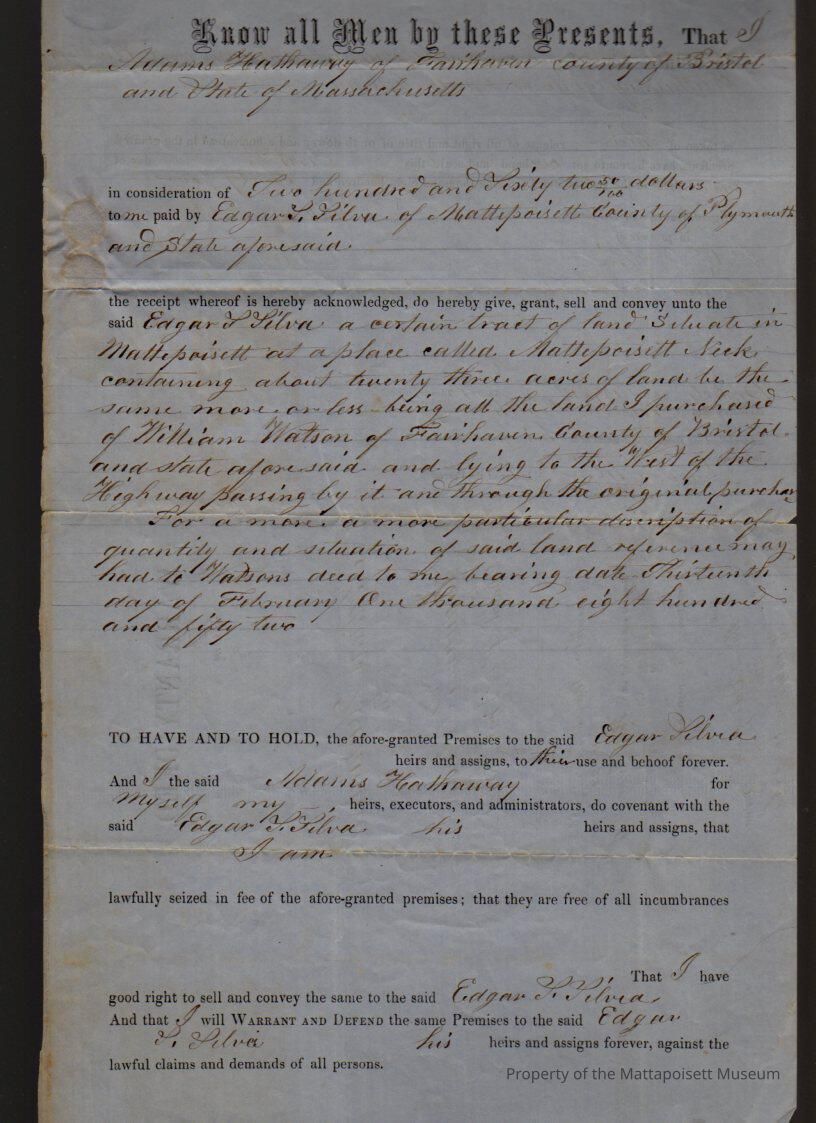 Know all Men by these Presents, That I
Adams Hathaway of Fairhaven county of Bristol
and State of Massachusetts
in consideration of Two hundred and Sixty two 50/100 dollars
to me paid by Edgar S. Silva of Mattepoisett County of Plymouth
and State aforesaid
the receipt whereof is hereby acknowledged, do hereby give, grant, sell and convey unto the
said Edgar S Silva a certain tract of land Situate in
Mattepoisett at a place called Mattepoisett Neck
containing about twenty three acres of land be the
same more or less being all the land I purchased
of William Watson of Fairhaven County of Bristol
and state aforesaid and lying to the West of the
Highway passing by it and through the original purchase
For a more a more particular description of
quantity and situation of said land reference may
had to Watsons deed to me bearing date Thirteenth
day of February One thousand eight hundred
and fifty two
TO HAVE AND TO HOLD, the afore-granted Premises to the said Edgar Silvia
heirs and assigns, to their use and behoof forever.
And I the said Adams Hathaway for
myself my heirs, executors, and administrators, do covenant with the
said Edgar S. Silva his heirs and assigns, that
I am
lawfully seized in fee of the afore-granted premises; that they are free of all incumbrances
That I have
good right to sell and convey the same to the said Edgar S. Silvia
And that I will WARRANT AND DEFEND the same Premises to the said Edgar
S. Silva his heirs and assigns forever, against the
lawful claims and demands of all persons.
Property of the Mattapoisett Museum